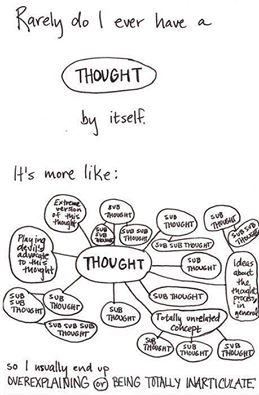 Rarely do I ever have a
THOUGHT
by itself.
It's more like:
Extreme
version
of this
thought
SUB
THOUGHT
SUB
SUB
THOUGHT
SUB SUB
THOUGHT
SUB
THOUGHT
SUB
THOUGHT
SUB SUB
THOUGHT
Playing
devil's
advocate
to this
thought
THOUGHT
SUB SUB THOUGHT
SUB
THOUGHT
Ideas
about
the
thought
process
in
general
SUB
SUB
THOUGHT
SUB
THOUGHT
SUB SUB SUB
THOUGHT
SUB
THOUGHT
SUB THOUGHT
Totally unrelated
concept
SUB
THOUGHT
SUB
THOUGHT
SUB
THOUGHT
so I usually end up
OVEREXPLAINING or BEING TOTALLY INARTICULATE